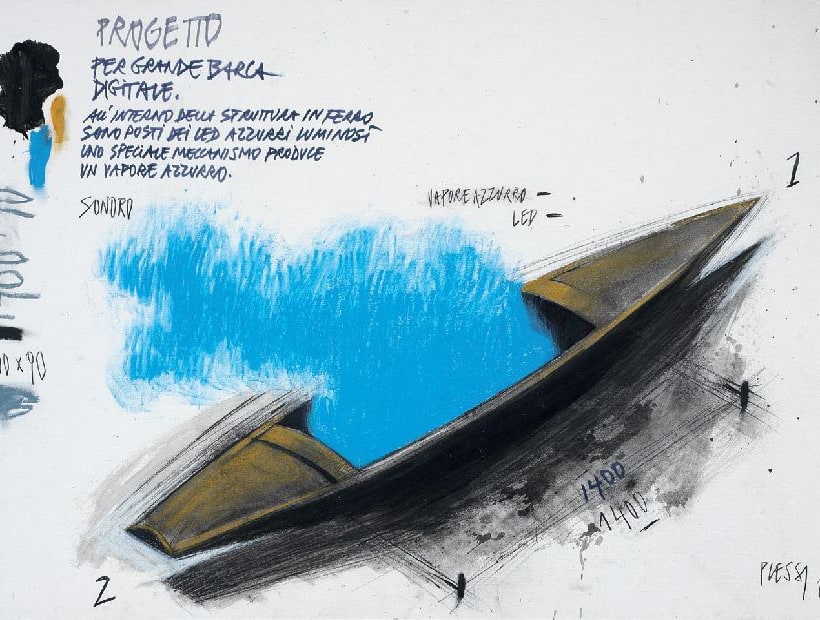 PROGETTO
PER GRANDE BARCA
DIGITALE.
ALL'INTERNO DELLA STRUTTURA IN FERRO
SONO POSTI DEI LED AZZURRI LUMINOSI
UNO SPECIALE MECCANISMO PRODUCE
UN VAPORE AZZURRO.
SONORO
VAPORE AZZURRO –
LED –
1
2
1400
1400
PLESSI